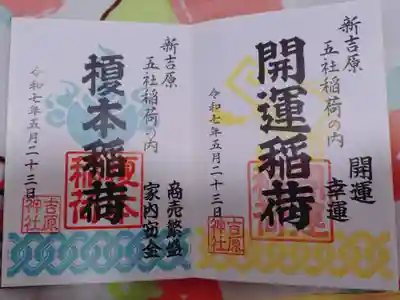 新吉原
五社稲荷の内
開運
幸運
開運稲荷
令和七年五月二十三日
吉原
神社
新吉原
五社稲荷の内
商売繁盛
家内安全
榎本稲荷
令和七年五月二十三日
吉原
神社